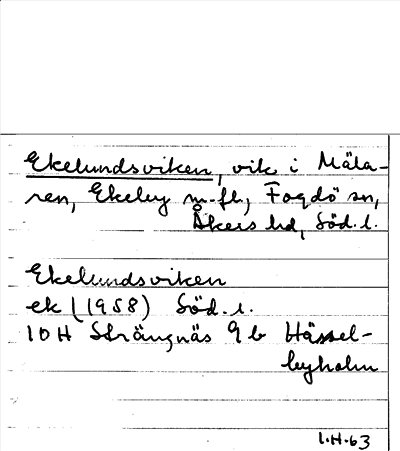 Ekelundsviken, vik i Mäla-
ren, Ekeby m.fl., Fogdö sn,
Åkers hd, Söd.l.
Ekelundsviken
ek (1958) Söd.l.
10H Strängnäs 9b Hässel-
byholm
1.H.63